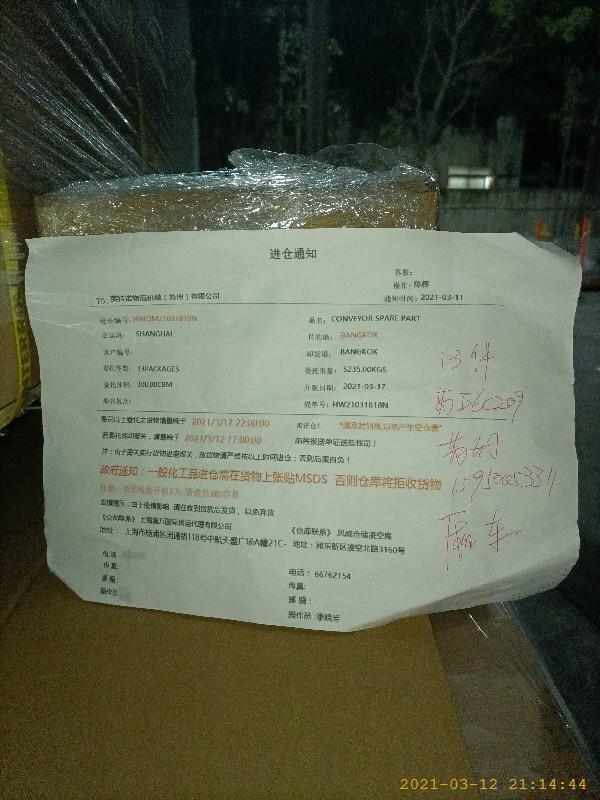 进仓通知
客服:
操作: 陈辉
TO: 英特诺物流机械(苏州)有限公司
通知时间: 2021-03-11
进仓编号: HWQM21031818N
品名: CONVEYOR SPARE PART
起运港: SHANGHAI
目的港: BANGKOK
客户编号:
卸货港: BANGKOK
委托件数: 13PACKAGES
委托重量: 5235.00KGS
委托体积: 300.00CBM
开航日期: 2021-03-17
船名航次:
提单号: HW21031818N
委司以上委托之货物请最晚于 2021/3/12 22:00:00 前进仓! "请及时到货,以免产生空仓费"
若委托我司报关, 请最晚于 2021/3/12 17:00:00 前将报送单证送抵我司!
注: 由于海关实行货物进港报关, 故货物请严格按以上时间进仓; 否则后果自负!
政府通知: 一般化工品进仓需在货物上张贴MSDS 否则仓库将拒收货物
友情提示: 由于疫情影响 请在收到货款后发货, 以免弃货
《公司联系》上海 国际货运代理有限公司
地址: 上海市杨浦区国通路118号中航天盛广场A幢21C-
《仓库联系》 风威仓储凌空库
地址: 浦东新区凌空北路3160号
电话:
传真:
邮编:
操作员
电话: 66762154
传真:
邮编:
操作员: 季晓芳
13件
车